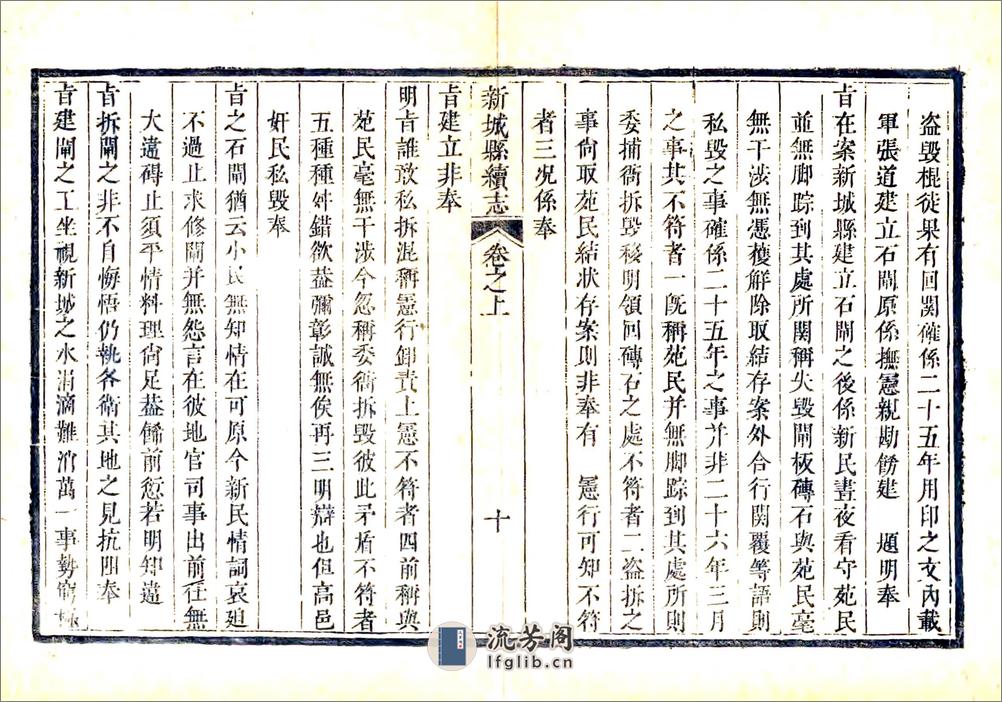 盗毁棍徒果有回関確係二十五年用印之文內載
軍張道建立石閘原係撫憲親勘飭建　題明奉
旨在案新城縣建立石閘之後係新民晝夜看守苑民
並無脚踪到其處所関稱失毁閘板磚石與苑民毫
無干涉無憑獲觧除取結存案外合行関覆等語則
私毁之事確係二十五年之事并非二十六年三月
之事其不符者一旣稱苑民并無脚踪到其處所則
委捕衙拆毁移明領回磚石之處不符者二盗拆之
事尙取苑民結狀存案則非奉有　憲行可知不符
者三况係奉
新城縣續志
卷之上
十
旨建立非奉
明旨誰敢私拆混稱憲行卸責上憲不符者四前稱與
苑民毫無干涉今忽稱委衙拆毁彼此矛盾不符者
五種種舛錯欲葢彌彰誠無俟再三明辯也但高邑
奸民私毁奉
旨之石閘猶云小民無知情在可原今新民情詞哀廹
不過止求修閘并無怨言在彼地官司事出前任無
大違碍止須平情料理尙足葢僃前愆若明知違
旨拆閘之非不自悔悟仍執各衛其地之見抗阻奉
旨建閘之工坐視新城之水涓滴難消萬一事勢窮極
流芳阁
lfglib.cn